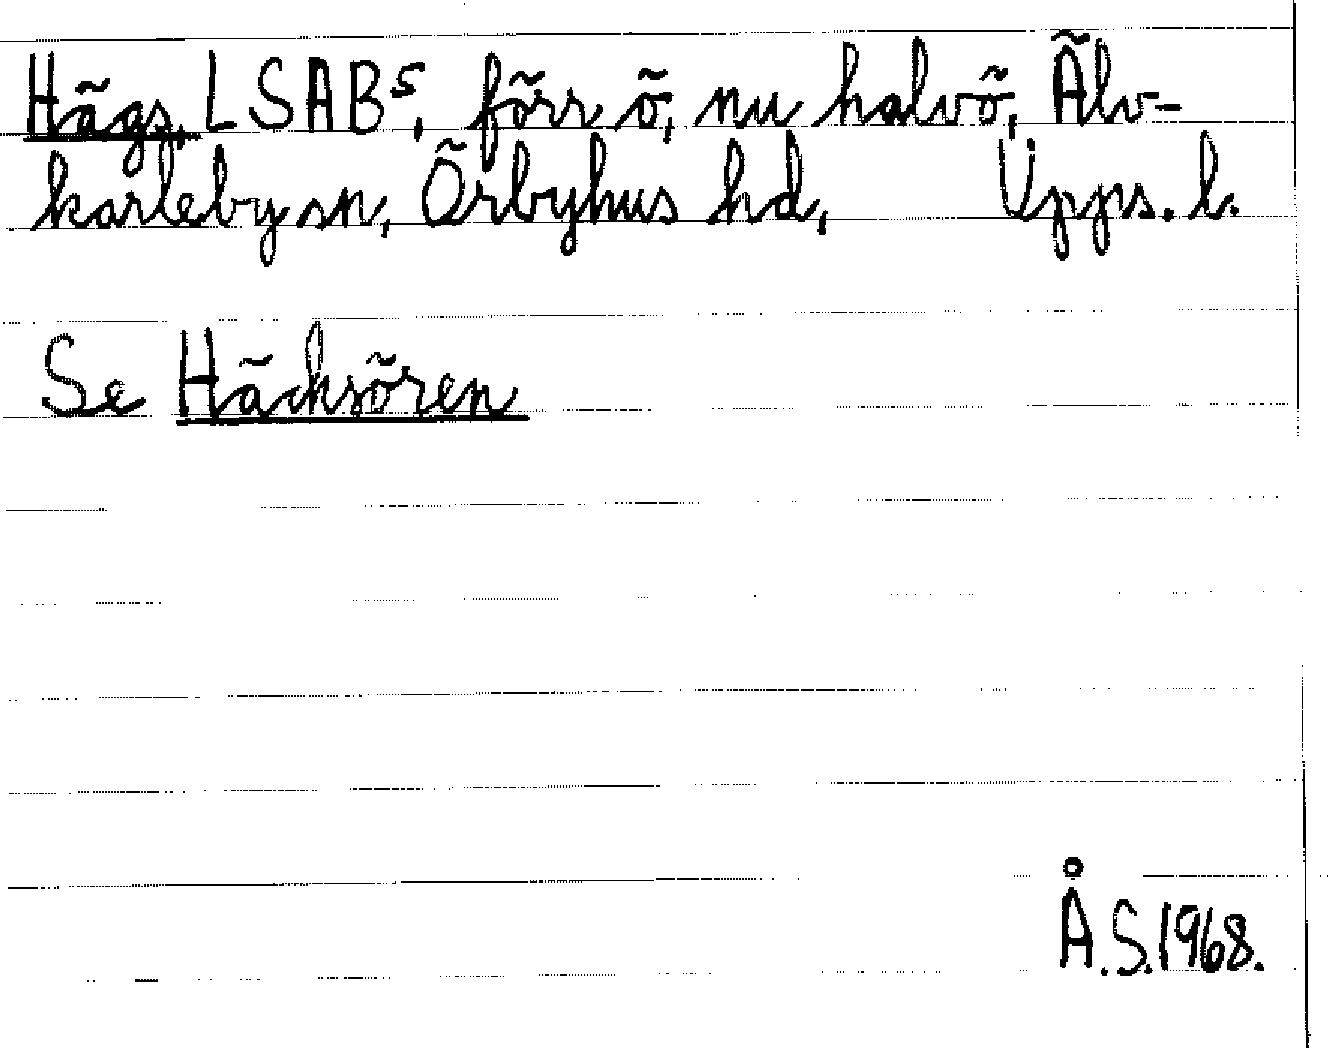 Hägs, LSAB⁵, förr ö, nu halvö, Älv-
karleby sn, Örbyhus hd, Upps. l.
Se Häcksören
Å.S. 1968.